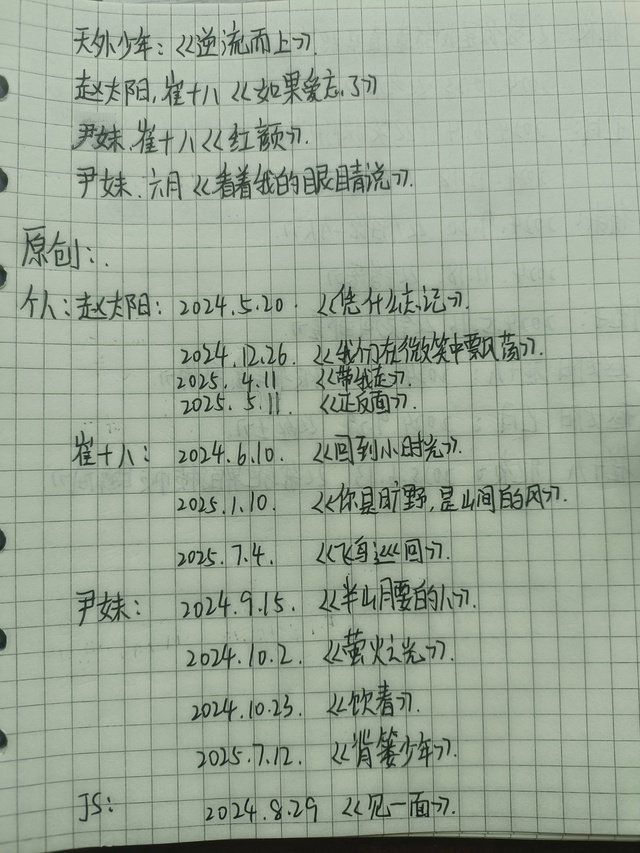 天外少年：《逆流而上》.
赵夫阳，崔十八《如果爱忘了》
尹妹，崔十八《红颜》.
尹妹．六月《看着我的眼睛说》.
原创：.
个人：赵夫阳：2024.5.20.《凭什么忘记》.
2024.12.26.《我们在微笑中飘荡》.
2025.4.11《带我走》.
2025.5.11.《正反面》.
崔十八：2024.6.10.《回到小时光》.
2025.1.10.《你是旷野，是山间的风》.
2025.7.4.《飞鸟巡回》.
尹妹：2024.9.15.《半山腰的人》.
2024.10.2.《萤火之光》.
2024.10.23.《饮春》.
2025.7.12.《背篓少年》.
JS：2024.8.29《见一面》.